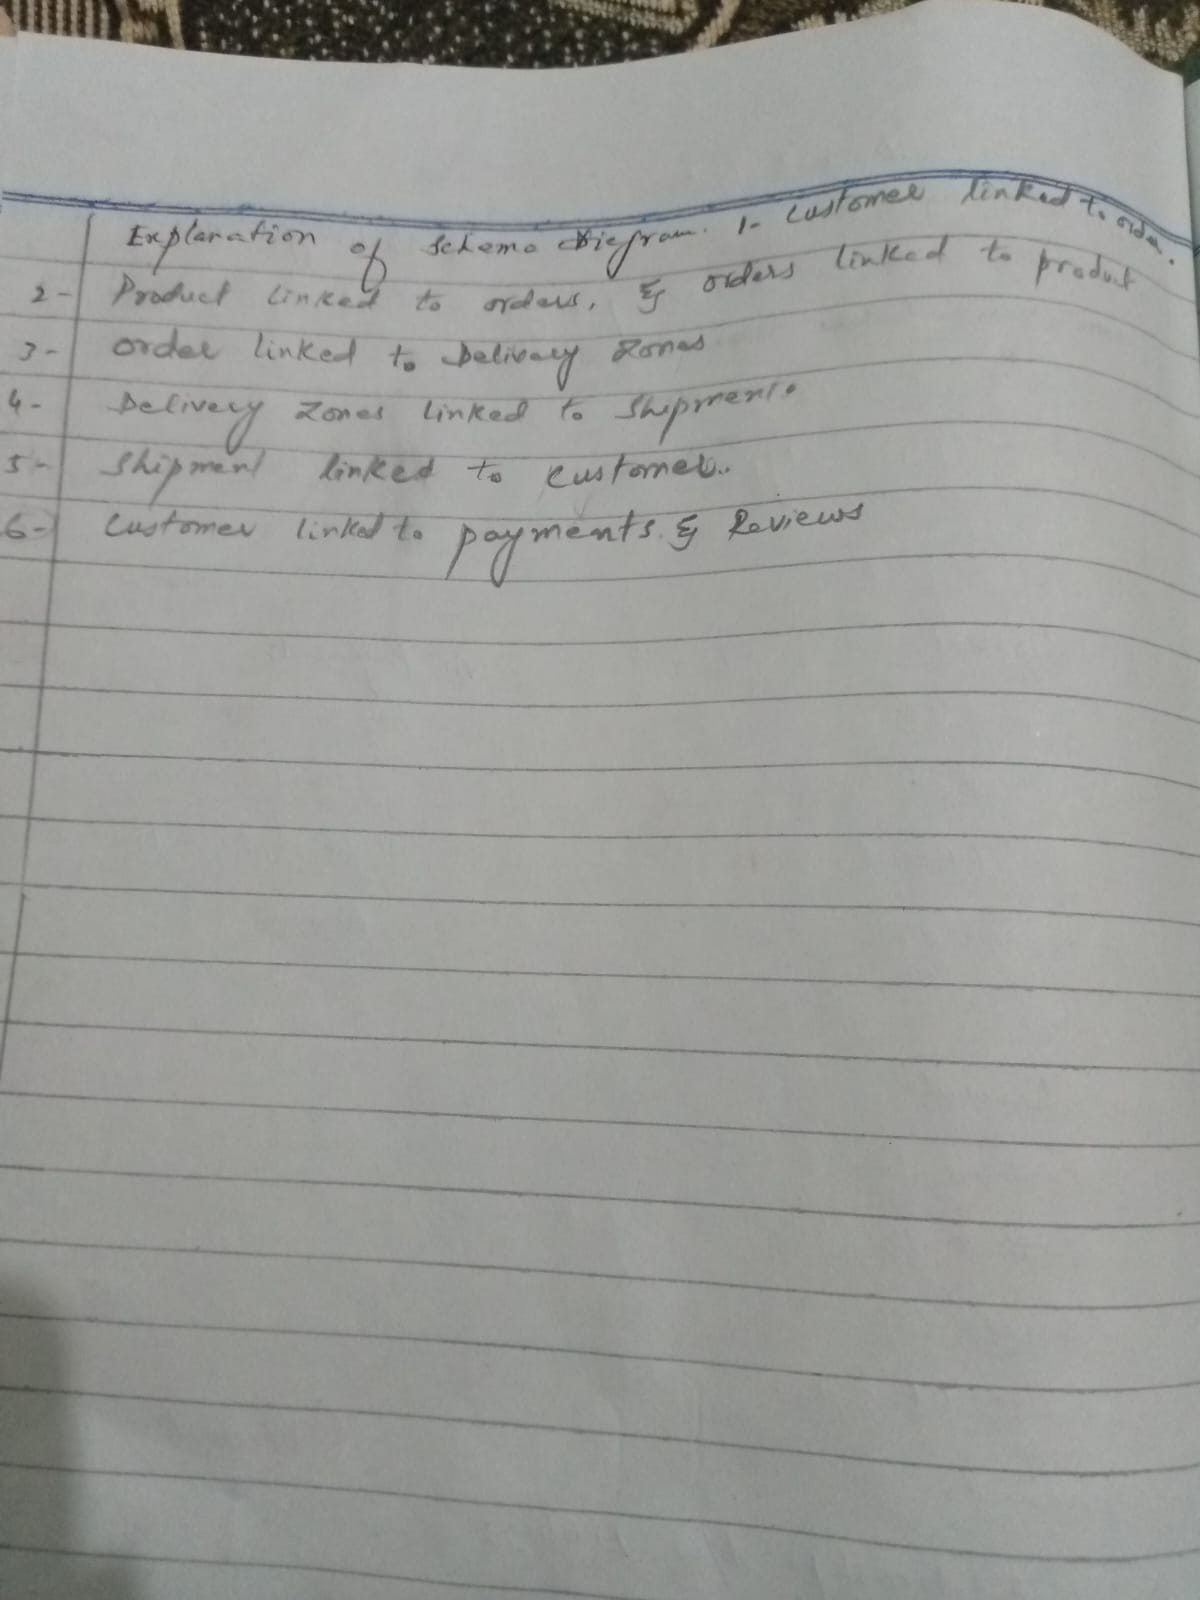 Explanation of Schema Diagram. 1- Customer linked to order.
2- Product linked to orders, & orders linked to product
3- order linked to Delivery Zones
4- Delivery Zones linked to Shipments
5- Shipment linked to Customer..
6- Customer linked to payments. & Reviews